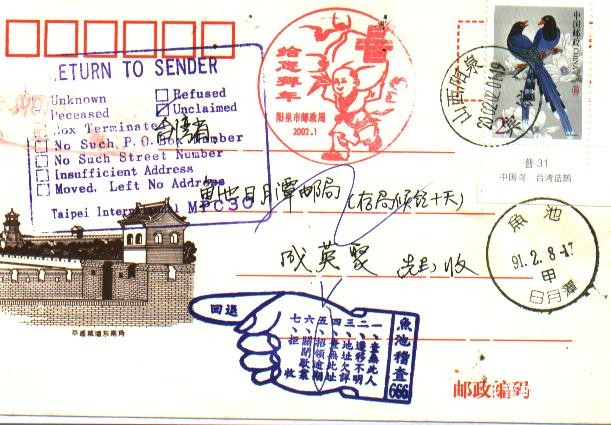 RETURN TO SENDER
Unknown
Refused
Deceased
Unclaimed
Box Terminated
No Such P.O. Box Number
No Such Street Number
Insufficient Address
Moved, Left No Address
Taipei International MPC30
给恩拜年
阳泉市邮政局
2002.1
中国邮政 CHINA
山西阳泉
普31
中国鸟·台湾蓝鹊
台湾省
鱼池日月潭邮局 (存局候领十天)
成英翠 先生 收
魚池
91.2.8.-17
甲
日月潭
回退
魚池稽查
666
一、查無此人
二、遷移不明
三、地址欠詳
四、查無此址
五、招領逾期
六、關閉歇業
七、拒收
平遥城墙东南角
邮政编码